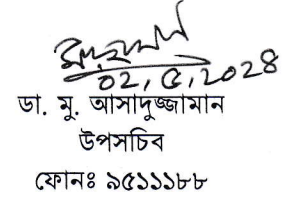 02,5,2024
ডা. মু. আসাদুজ্জামান
উপসচিব
ফোনঃ ৯৫১১১৮৮